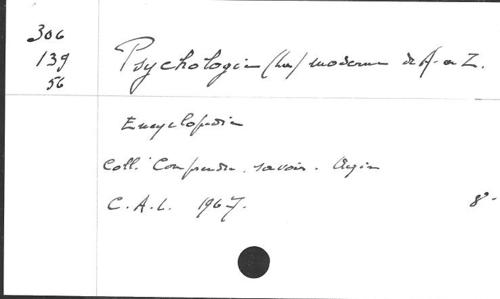 306
139
56
Psychologie (La) moderne de A à Z.
Encyclopédie
Coll. Comprendre. savoir. Agir
C.A.L. 1967.
8-